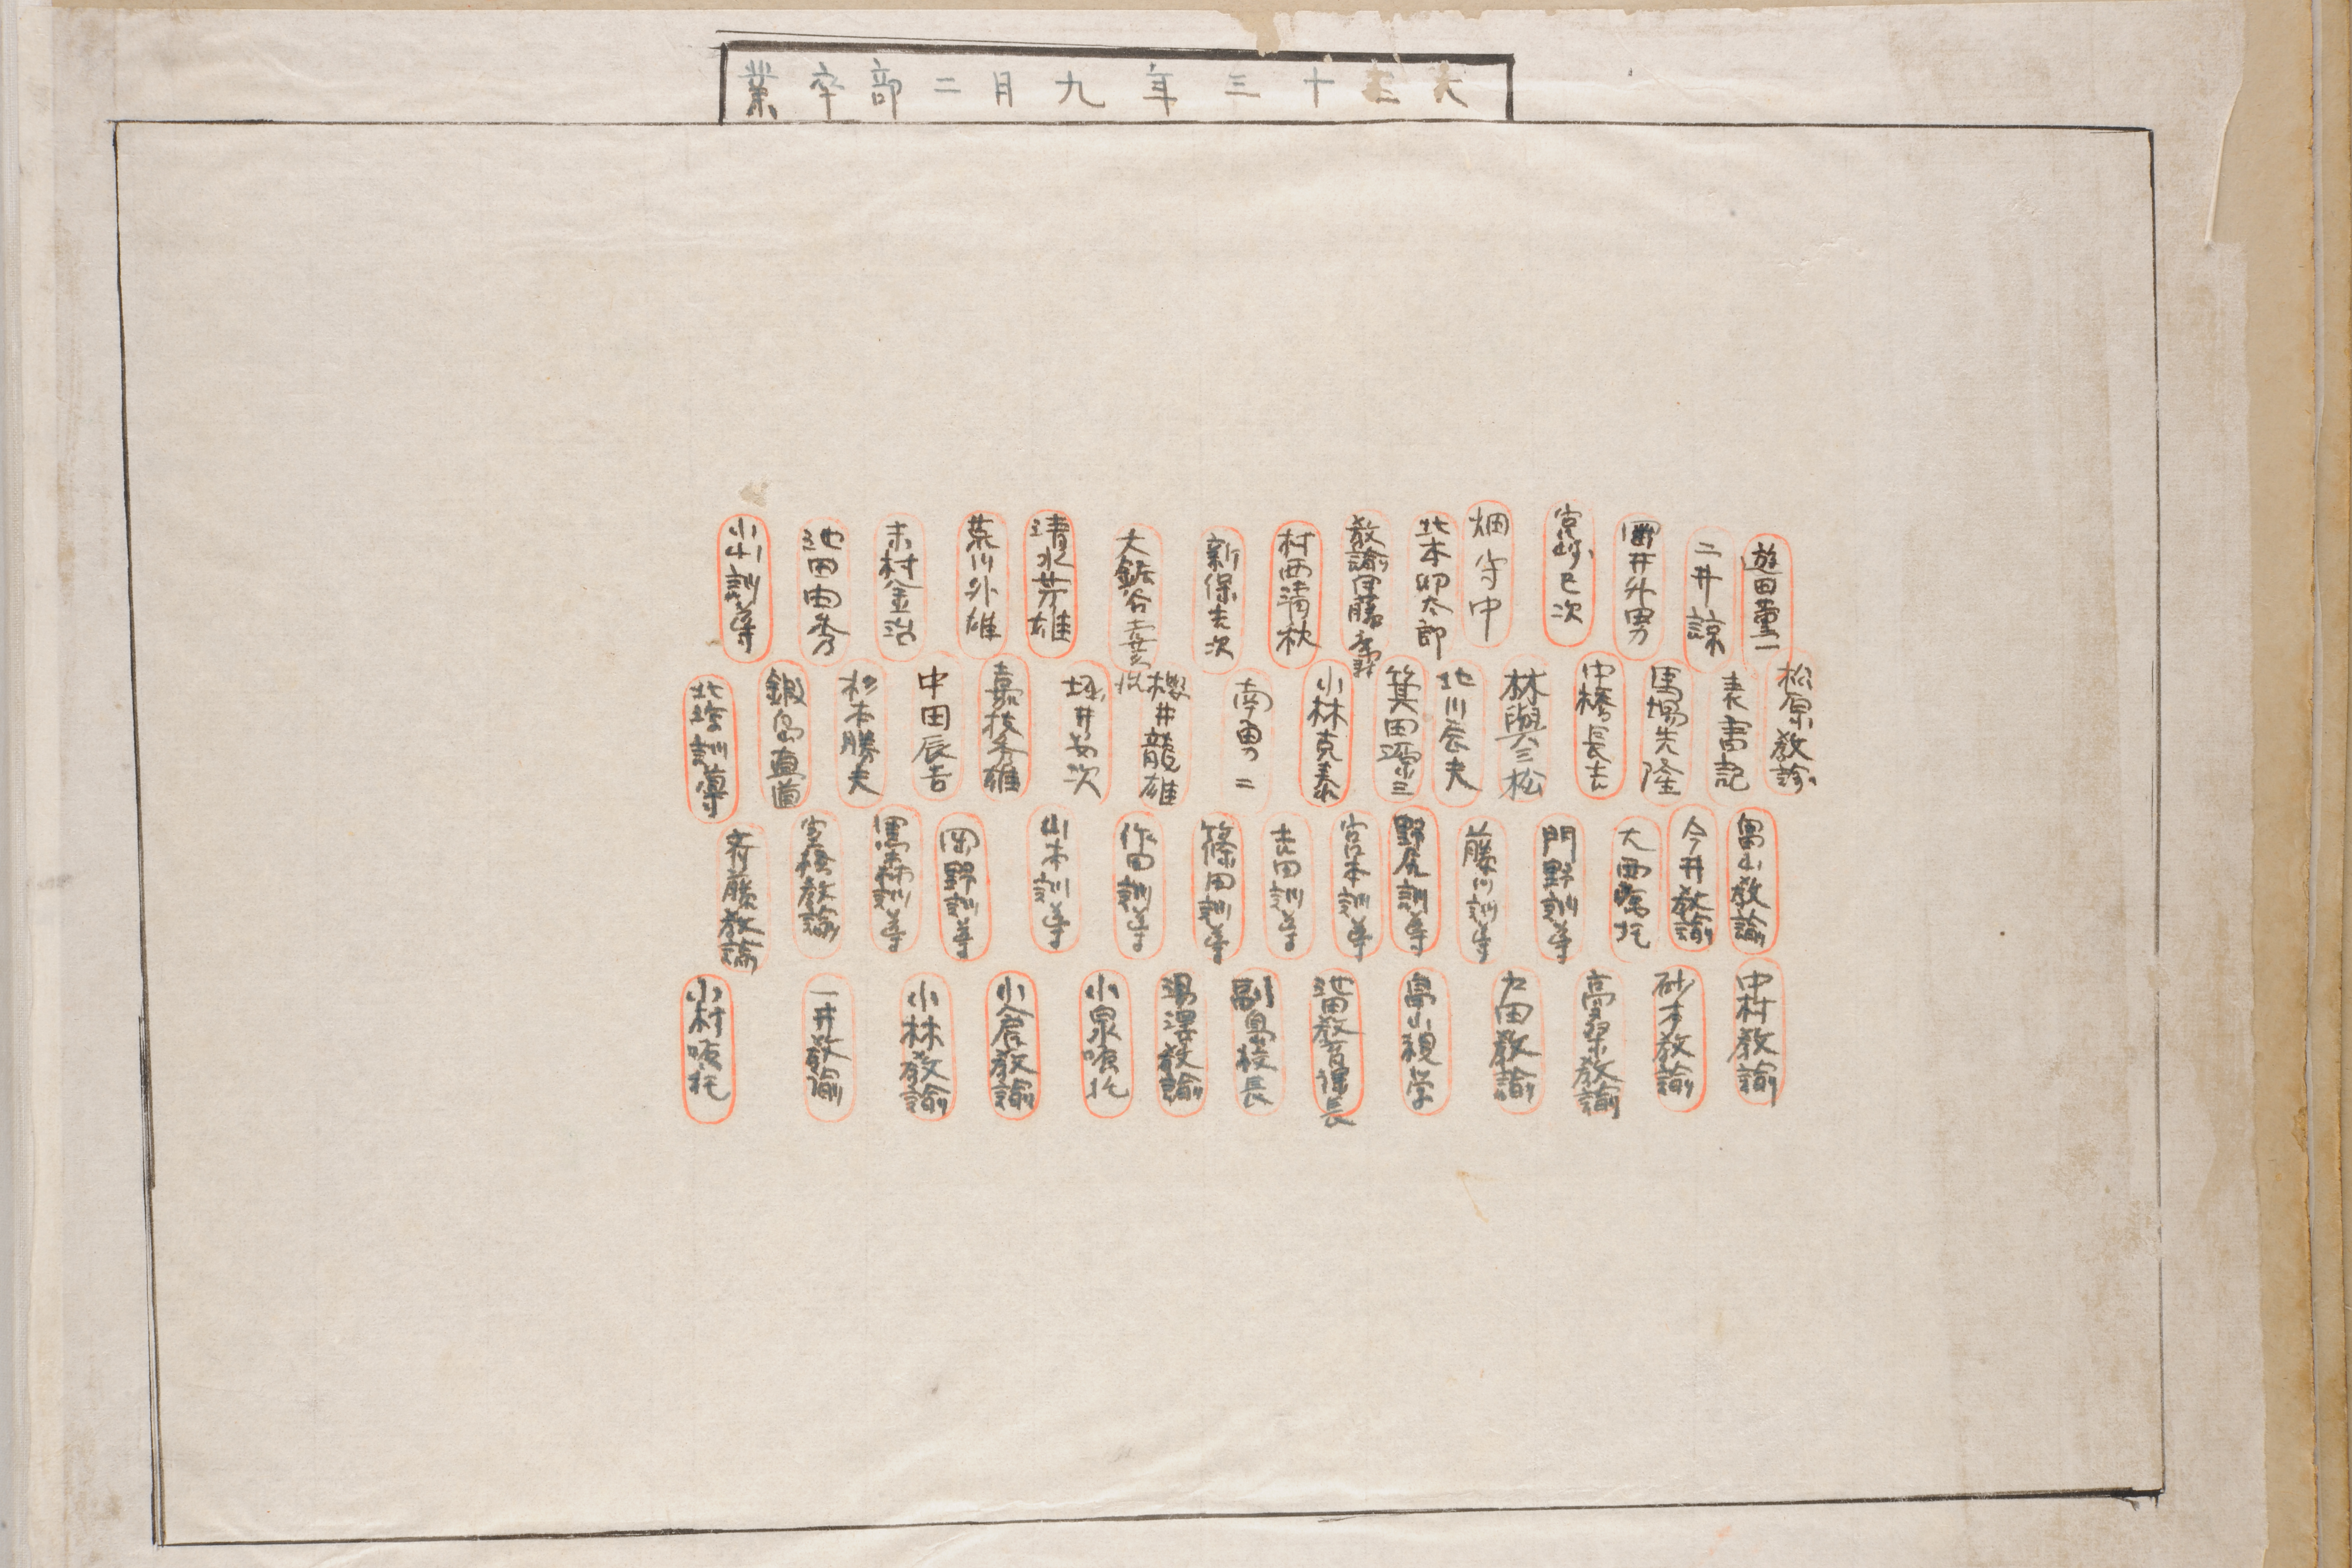 大正十三年九月二部卒業
遊田菫一
二井諒
岡井外男
宮崎巳次
畑守中
北本卯太郎
教諭伊藤
村西清秋
新保吉次
大鋸谷
清水芳雄
荒川外雄
末村金治
池田由秀
小山訓導
松原教諭
表書記
馬場先隆
中橋長吉
林與三松
北川辰夫
箕田源三
小林克泰
南勇二
櫻井龍雄
坂井安次
嘉枝秀雄
中田辰吉
杉本勝夫
鍛島直道
北崎訓導
畠山教諭
今井教諭
大西嘱托
門野訓導
藤川訓導
野尻訓導
宮本訓導
吉田訓導
篠田訓導
作田訓導
山本訓導
岡野訓導
黒森訓導
斉藤教諭
中村教諭
砂才教諭
高桒教諭
左田教諭
畠山視学
池田教育課長
副島校長
湯澤教諭
小泉嘱托
小倉教諭
小林教諭
一井教諭
小村嘱托